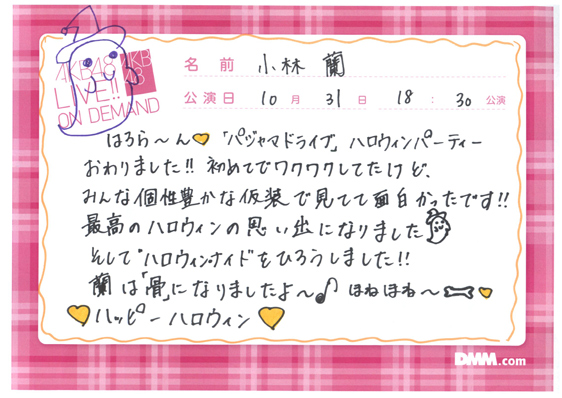 AKB48
LIVE!!
ON DEMAND
名前 小林 蘭
公演日 10月 31日 18:30公演
はろら〜ん「パジャマドライブ」ハロウィンパーティー
おわりました!! 初めてでワクワクしてたけど、
みんな個性豊かな仮装で見てて面白かったです!!
最高のハロウィンの思い出になりました
そして"ハロウィン・ナイト"をひろうしました!!
蘭は「骨」になりましたよ〜♪ ほねほね〜
ハッピーハロウィン
DMM.com